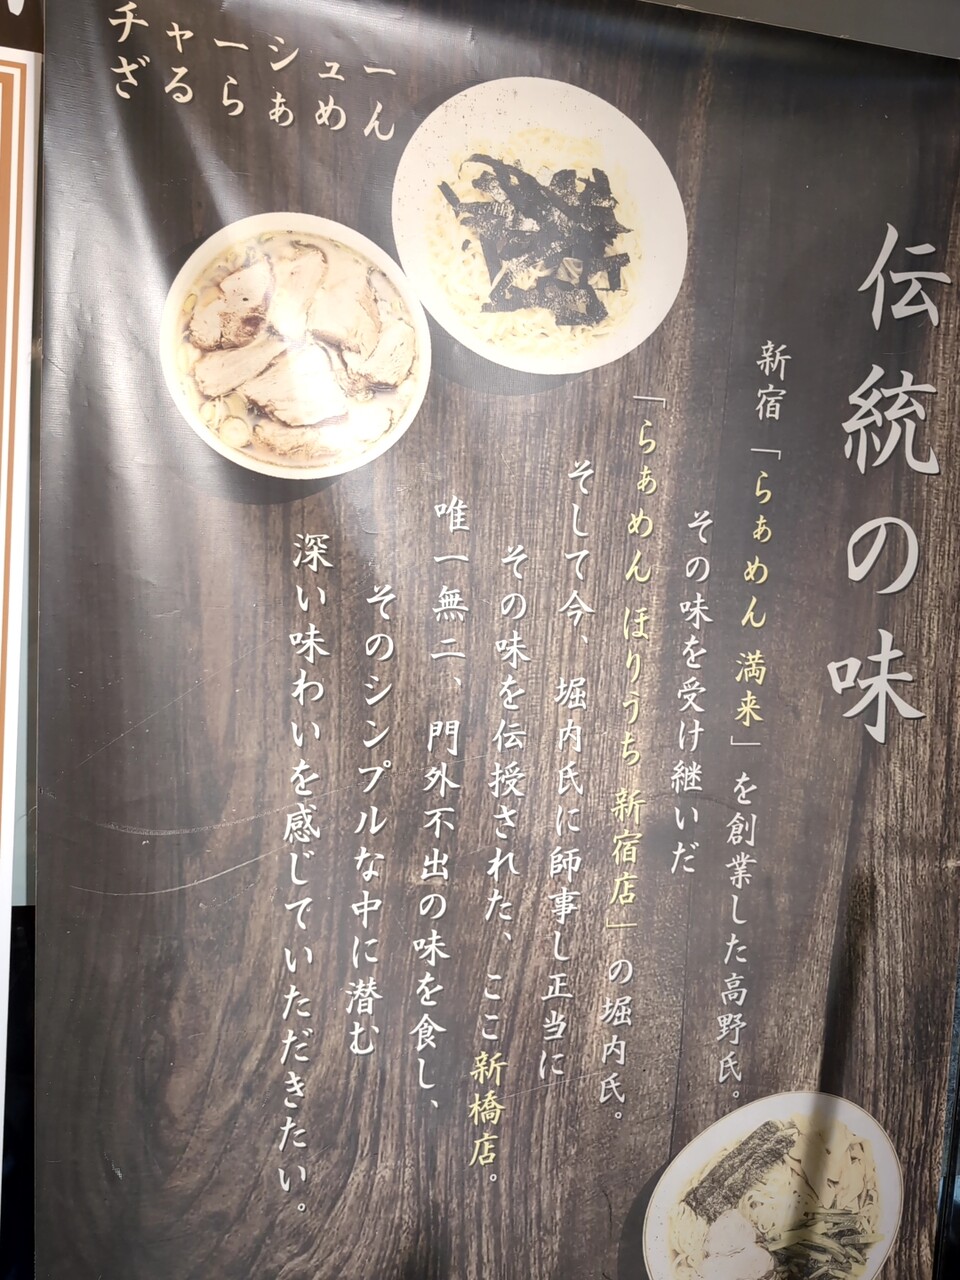 チャーシュー
ざるらぁめん
伝統の味
新宿「らぁめん 満来」を創業した高野氏。
その味を受け継いだ
「らぁめん ほりうち 新宿店」の堀内氏。
そして今、堀内氏に師事し正当に
その味を伝授された、ここ新橋店。
唯一無二、門外不出の味を食し、
そのシンプルな中に潜む
深い味わいを感じていただきたい。